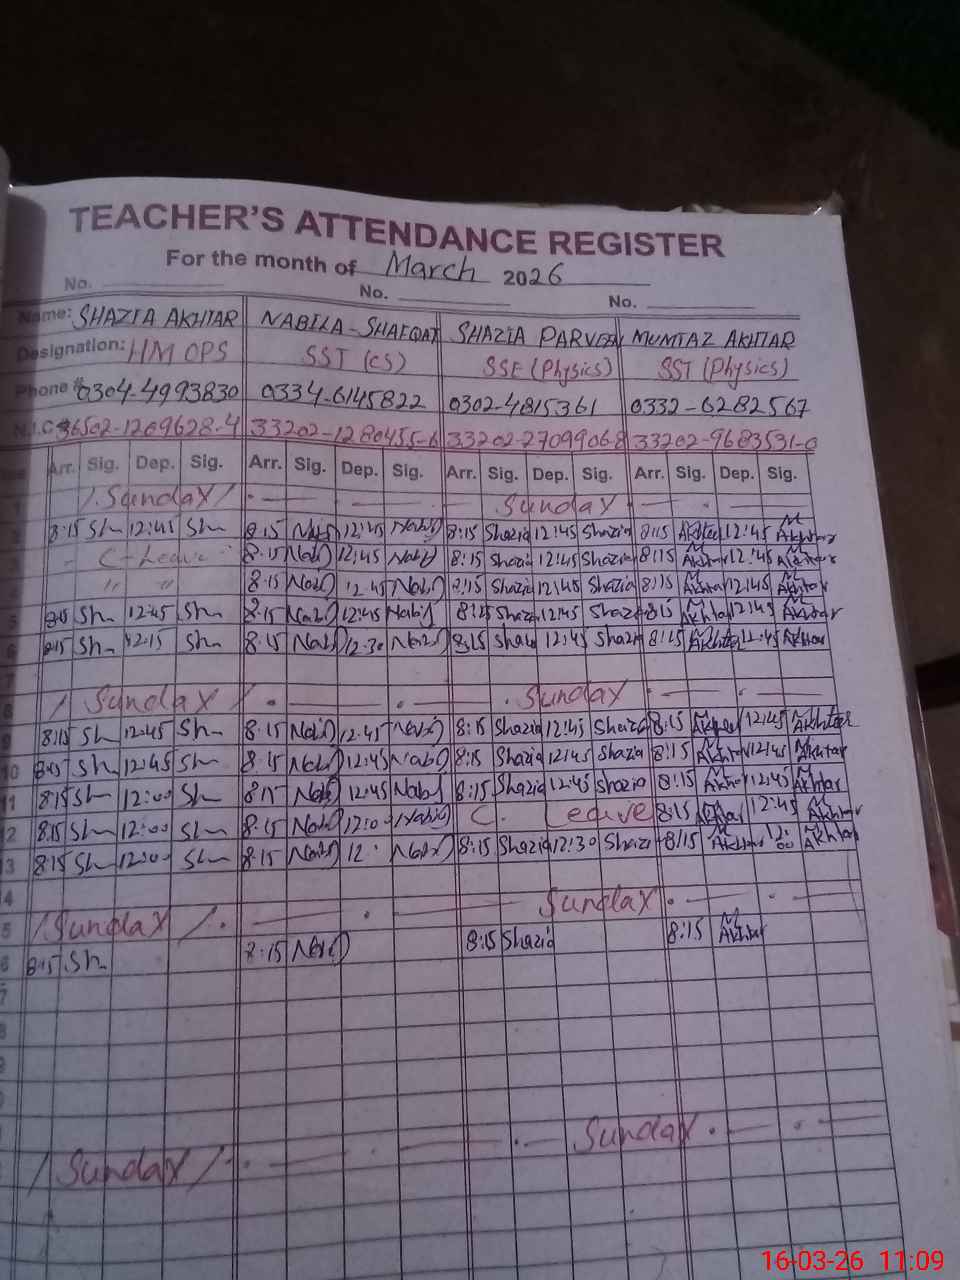 TEACHER'S ATTENDANCE REGISTER
For the month of March 2026
No. No. No.
Name: SHAZIA AKHTAR NABILA-SHAFQAT SHAZIA PARVEEN MUMTAZ AKHTAR
Designation: HM OPS SST (CS) SSE (Physics) SST (Physics)
Phone # 0304-4993830 0334-6145822 0302-4815361 0332-6282567
N.I.C # 36502-1269628-4 33202-1280455-6 33202-2709906-8 33202-9683531-0
Arr. Sig. Dep. Sig. Arr. Sig. Dep. Sig. Arr. Sig. Dep. Sig. Arr. Sig. Dep. Sig.
Sunday Sunday
8:15 Sh 12:45 Sh 8:15 Nabi 12:45 Nabi 8:15 Shazia 12:45 Shazia 8:15 Akhtar 12:45 M Akhtar
C-Leave 8:15 Nabi 12:45 Nabi 8:15 Shazia 12:45 Shazia 8:15 Akhtar 12:45 M Akhtar
" " 8:15 Nabi 12:45 Nabi 8:15 Shazia 12:45 Shazia 8:15 M Akhtar 12:45 M Akhtar
5 8:15 Sh 12:45 Sh 8:15 Nabi 12:45 Nabi 8:15 Shazia 12:45 Shazia 8:15 M Akhtar 12:45 M Akhtar
6 8:15 Sh 12:15 Sh 8:15 Nabi 12:30 Nabi 8:15 Shazia 12:45 Shazia 8:15 Akhtar 12:45 M Akhtar
7
8 Sunday Sunday
9 8:15 Sh 12:45 Sh 8:15 Nabi 12:45 Nabi 8:15 Shazia 12:45 Shazia 8:15 M Akhtar 12:45 M Akhtar
10 8:15 Sh 12:45 Sh 8:15 Nabi 12:45 Nabi 8:15 Shazia 12:45 Shazia 8:15 M Akhtar 12:45 M Akhtar
11 8:15 Sh 12:00 Sh 8:15 Nabi 12:45 Nabi 8:15 Shazia 12:45 Shazia 8:15 M Akhtar 12:45 M Akhtar
12 8:15 Sh 12:00 Sh 8:15 Nabi 12:0 Nabi C. Leave 8:15 M Akhtar 12:45 M Akhtar
13 8:15 Sh 12:00 Sh 8:15 Nabi 12: Nabi 8:15 Shazia 12:30 Shazi 8:15 M Akhtar 12:00 M Akhtar
4
5 Sunday Sunday
6 8:15 Sh 8:15 Nabi 8:15 Shazia 8:15 M Akhtar
7
8
9
Sunday Sunday
16-03-26 11:09